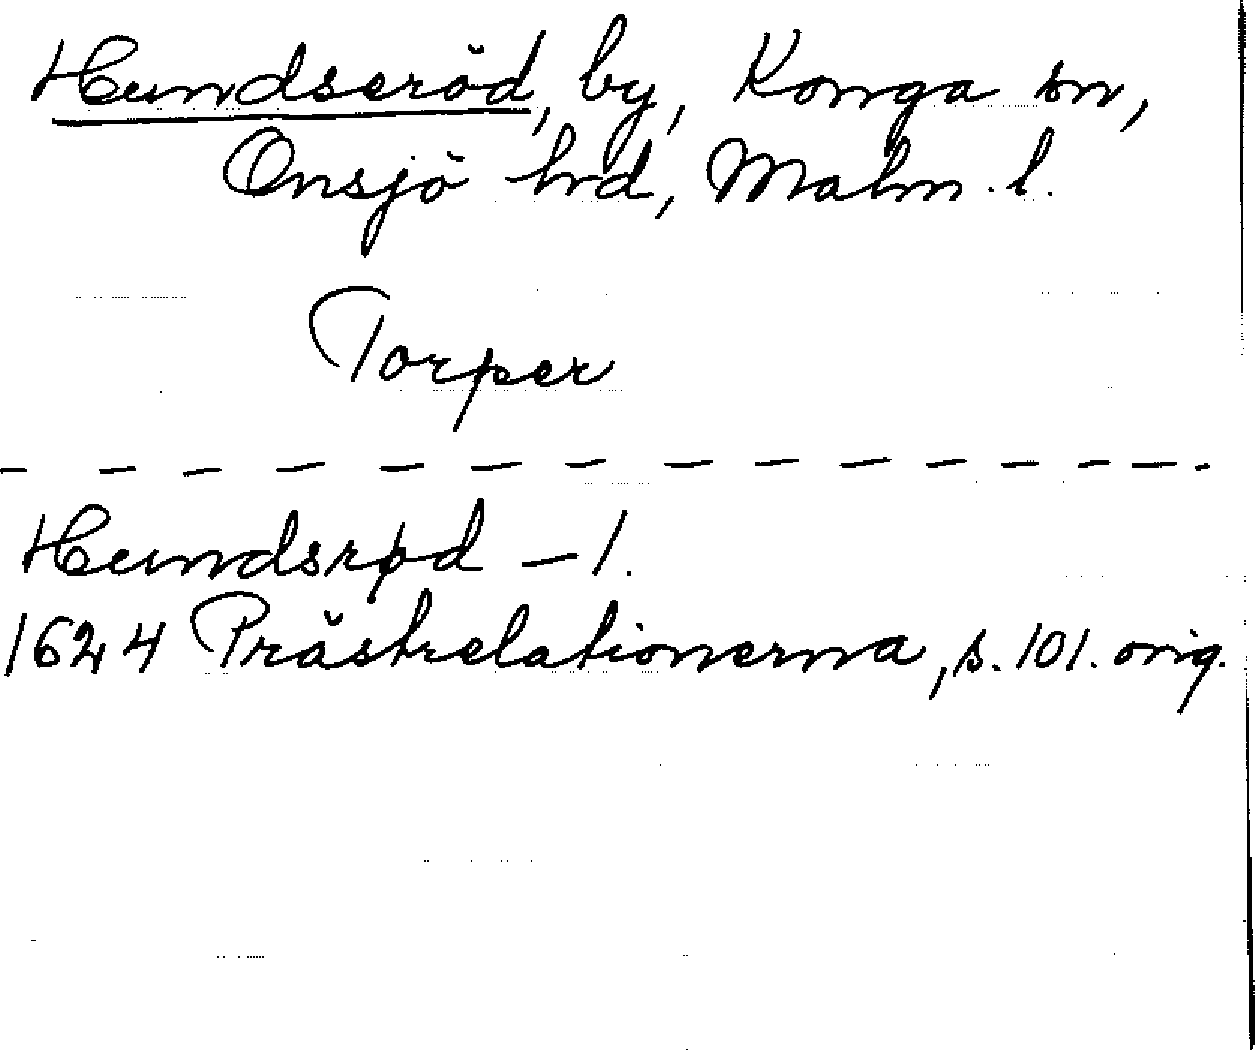 Hundseröd, by, Konga sn,
Onsjö hrd, Malm. l.
Torper
Hundsrød – 1.
1624 Prästrelationerna, s. 101. orig.